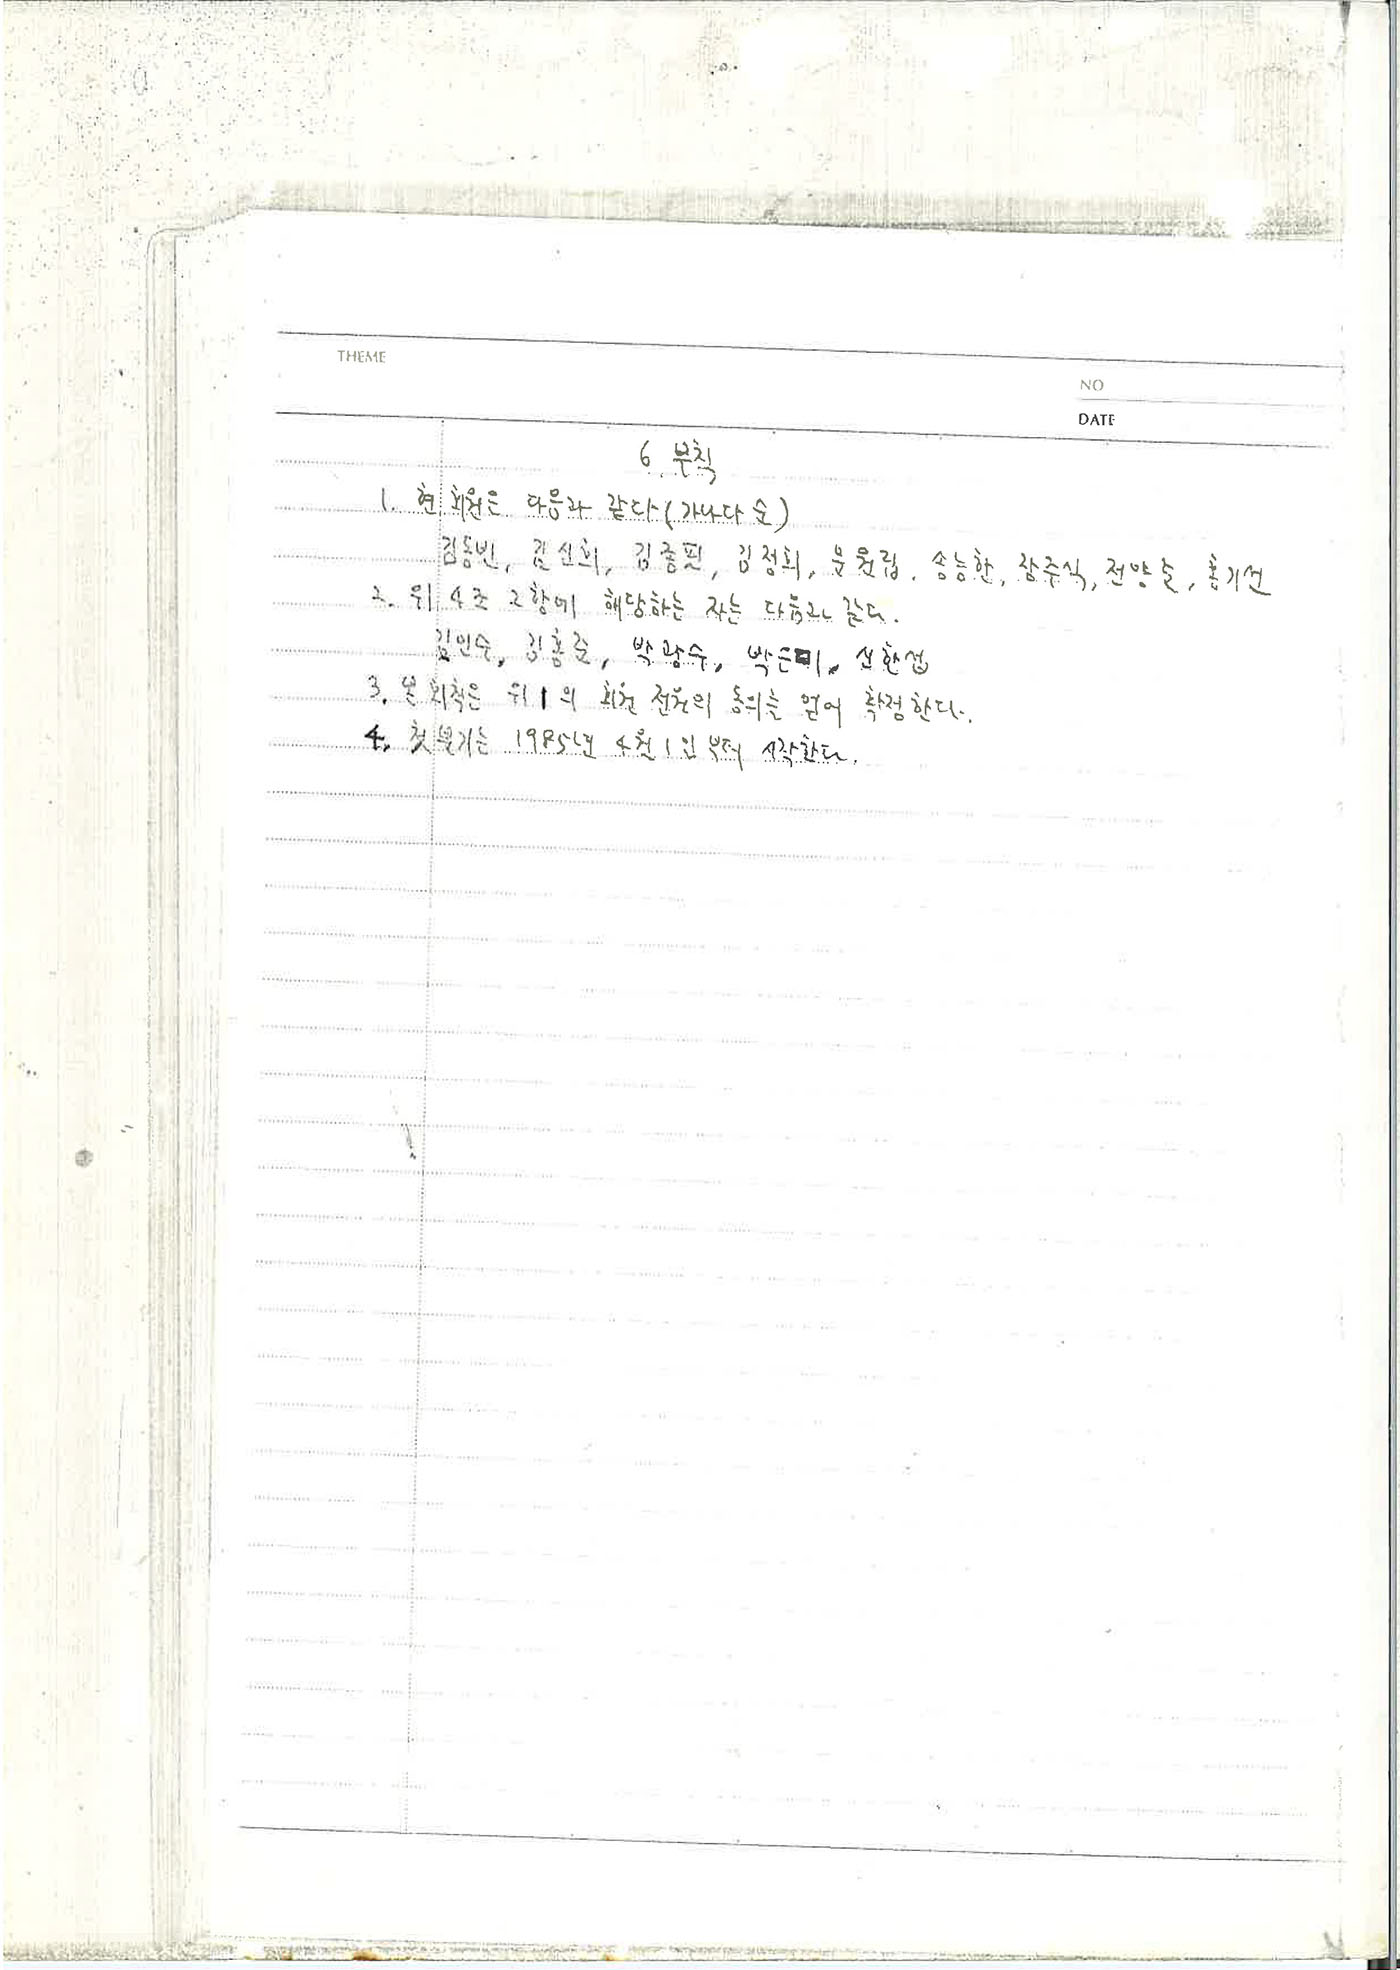 THEME
NO
DATE
6. 부칙
1. 현 회원은 다음과 같다 (가나다 순)
김동빈, 김신희, 김종필, 김정희, 문원립, 송능한, 장주식, 전양준, 홍기선
2. 위 4조 2항에 해당하는 자는 다음과 같다.
김인수, 김홍준, 박광수, 박은미, 신환섭
3. 본 회칙은 위 1의 회원 전원의 동의를 얻어 확정한다.
4. 첫 분기는 1985년 4월 1일부터 시작한다.